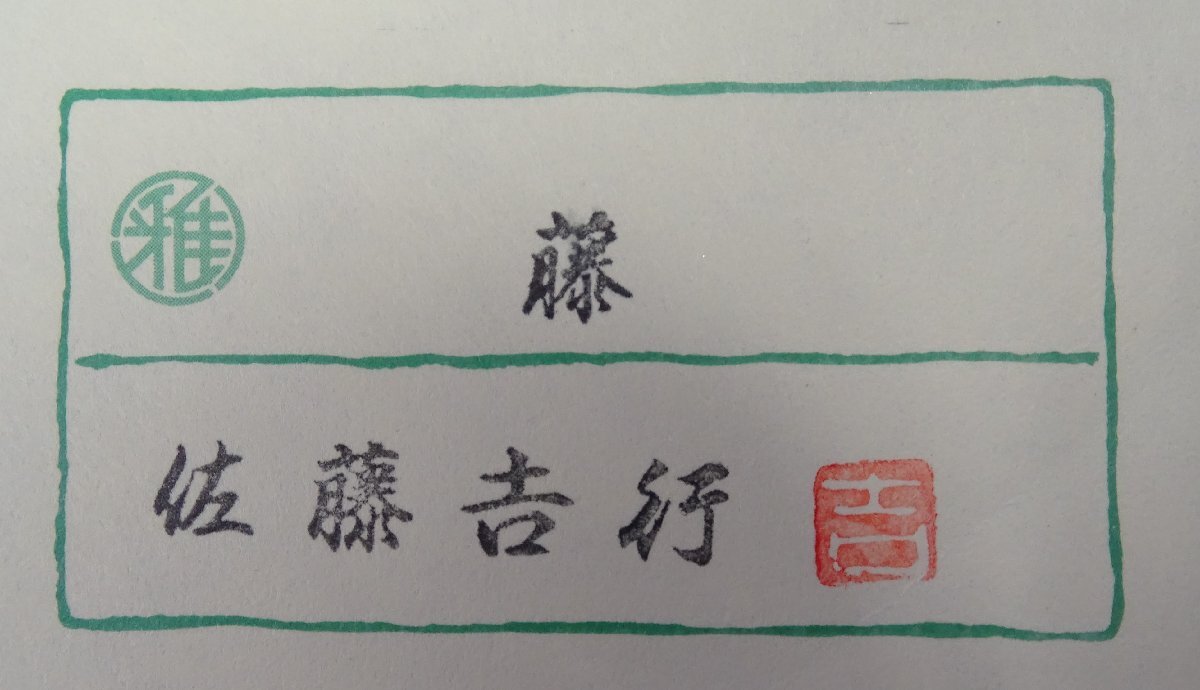 雅
藤
佐藤吉行
吉